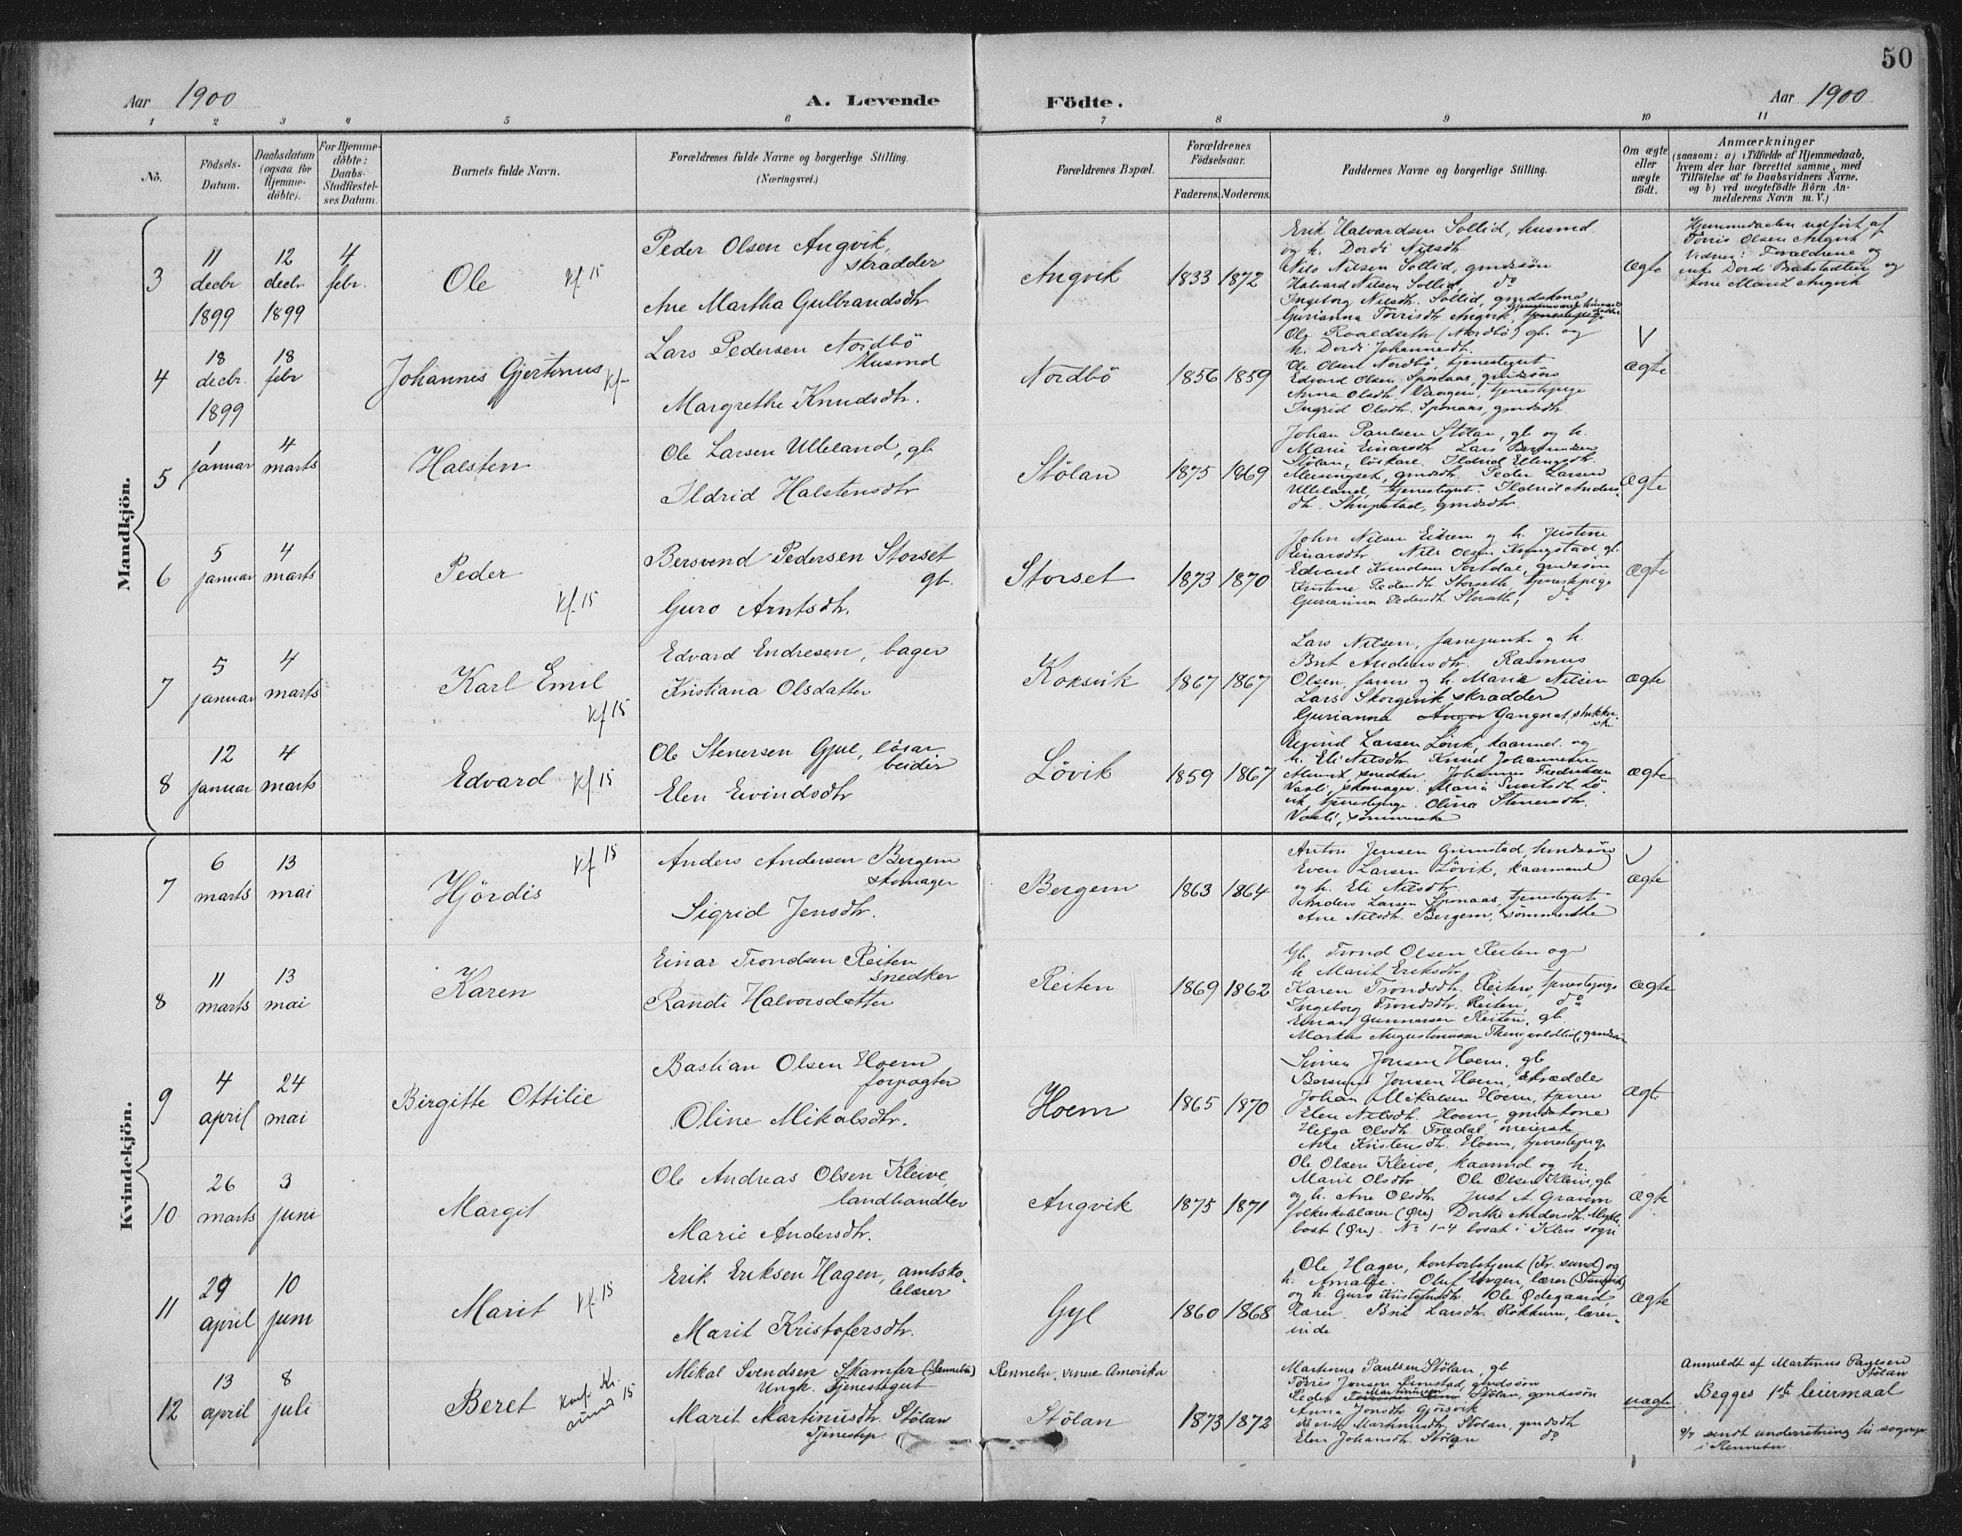 50
Aar 1900
A. Levende
Födte.
Aar 1900
1 2 3 4 5 6 7 8 9 10 11
No.
Födsels-
Datum.
Daabsdatum
(ogsaa for
Hjemme-
döbte).
For Hjemme-
döbte:
Daabs-
Stadfæstel-
ses Datum.
Barnets fulde Navn.
Forældrenes fulde Navne og borgerlige Stilling.
(Næringsvei.)
Forældrenes Bopæl.
Forældrenes
Födselsaar.
Faderens. Moderens.
Faddernes Navne og borgerlige Stilling.
Om ægte
eller
uægte
födt.
Anmærkninger
(saasom: a) i Tilfælde af Hjemmedaab,
hvem der har forrettet samme, med
Tilföielse af to Daabsvidners Navne,
og b) ved uægtefödte Börn An-
melderens Navn m. V.)
Mandkjön.
3
11
decbr
1899
12
decbr
1899
4
febr.
Ole
kf 15
Peder Olsen Angvik,
skrædder
Ane Martha Gulbrandsdtr
Angvik
1833 1872
Erik Halvardsen Sollid, husmd
og h. Dordi Nilsdtr.
Nils Nilsen Sollid, gmdssön
Halvard Nilsen Sollid, do
Ingeborg Nilsdtr. Sollid, gmdskone
Gurianna Torrisdtr Angvik,
ægte
Hjemmedaaben udfört af
Torris Olsen Angvik
Vidner: Forældrene og
enke Dordi og
kone Marit Angvik
4
18
decbr.
1899
18
febr
Johannes Gjertinus
kf
Lars Pedersen Nordbö
Husmd
Margrethe Knudsdtr.
Nordbö
1856 1859
Ole Roaldseth (Nordbö) gb. og
h. Dordi Johannesdtr.
Ole Olsen Nordbö, tjenestegut
Edvard Olsen Sponaas, gmdssön
Anna Olsdtr. Vaagen, tjenestepige
Ingrid Olsdtr. Sponaas, gmdsdtr.
V
ægte
5
1
januar
4
marts
Halsten
Ole Larsen Ulleland, gb
Ildrid Halstensdtr
Stölan
1875 1869
Johan Paulsen Stölan, gb og h.
Marie Einarsdtr. Lars Berntsen
Stölan, löskarl. Ildrid Ellingsdtr.
Meisingset, gmdsdtr. Peder Larsen
Ulleland, tjenestegut. Ildrid Anders-
dtr. gmdsdtr.
ægte
6
5
januar
4
marts
Peder
kf. 15
Bersvend Pedersen Storset
gb.
Guro Arntsdtr.
Storset
1873 1870
John Nilsen Eikrem og h. Justine
Einarsdtr. Nils Olsen gb.
Edvard Knudsen gmdssön
Kristine Pedersdtr. Storseth, tjenestepige
Gurianna Pedersdtr. Storseth, do
ægte
7
5
januar
4
marts
Karl Emil
kf 15
Edvard Endresen, bager
Kristiana Olsdatter
Koksvik
1867 1867
Lars Nilsen, og h.
Brit Andersdtr. Rasmus
Olsen, og h. Marie Nilsen
Lars Skorgevik skrædder
Gurianna Gangnat,
ægte
8
12
januar
4
marts
Edvard
kf. 15
Ole Stenersen Gjul, lösar
beider
Elen Eivindsdtr
Lövik
1859 1867
Eivind Larsen Lövik, kaarmd. og
h. Eli Nilsdtr. Knud Johannesen
snedker. Johannes Fredriksen
Vaali, skomager. Marie Sivertsdt. Lö-
vik, tjenestepige. Olina Stenersdtr.
Vaali, sömmerske
ægte
Kvindekjön.
7
6
marts
13
mai
Hjördis
kf 15
Anders Andersen Bergem
skomager
Sigrid Jensdtr.
Bergem
1863 1864
Anton Jensen Grimstad, husdssön
Even Larsen Lövik, kaarmand
og h. Eli Nilsdtr.
Anders Larsen Sponaas, tjenestegut
Ane Nilsdtr. Bergem, sömmerske
V
ægte
8
11
marts
13
mai
Karen
Einar Trondsen Reiten
snedker
Randi Halvorsdatter
Reiten
1869 1862
Gb. Trond Olsen Reiten og
h. Marit Eriksdtr.
Karen Trondsdtr. Reiten, tjenestepige
Ingeborg Trondsdtr. Reiten, do
Einar Gunnarsen Reiten, gb
Markus Augustinussen gmdssön
ægte
9
4
april
24
mai
Birgitte Ottilie
Bastian Olsen Hoem
forpagter
Oline Mikalsdtr.
Hoem
1865 1870
Simen Jonsen Hoem, gb
Bersvend Jonsen Hoem, skrædder
Johan Mikalsen Hoem, tjener
Elen Nilsdtr. Hoem, gmdskone
Helga Olsdtr. Tredal, meierske
Ane Kristensdtr. Hoem, tjenestepige
ægte
10
26
marts
3
juni
Margit
Ole Andreas Olsen Kleive,
landhandler
Marie Andersdtr.
Angvik
1875 1871
Ole Olsen Kleive, kaarmd og h.
Marit Olsdtr. Ole Olsen Kleive, gb
og h. Ane Olsdtr. Just A. Gravem
folkeskolelærer (Öre). Dorthe Andersdtr. Mykle-
bost (Öre). No 1-4 bosat i Kleive sogn
ægte
11
29
april
10
juni
Marit
kf. 15
Erik Eriksen Hagen, amtsko-
lelærer
Marit Kristofersdtr.
Gyl
1860 1868
Ole Hagen, kontorbetjent (Kr. sund) og
h. Amalie. Oluf Hagen, lærer (Stangvik)
og h. Guro Kristofersdtr. Ole Ödegaard
lærer. Brit Larsdtr. Rokkum, lærer-
inde
ægte
12
13
april
8
juli
Beret
Konf. Kr.
sund 15
Mikal Svendsen Skamfer (Rennebu)
Ungk. Tjenestegut
Marit Martinusdtr. Stölan
Tjenestep.
Rennebu, senere Amerika
Stölan
1873 1872
Martinus Paulsen Stölan, gb
Torris Jonsen Rimstad, gmdssön
Peder Martinusen Stölan, gmdssön
Anna Jonsdtr Gjörsvik
Berith Martinusdtr. Stölan, gmdsdtr
Elen Johansdtr. Stölan do
uægte
Anmeldt af Martinus Paulsen
Stölan
Begges 1ste leiermaal
9/7 sendt underretning til sognepr.
i Rennebu